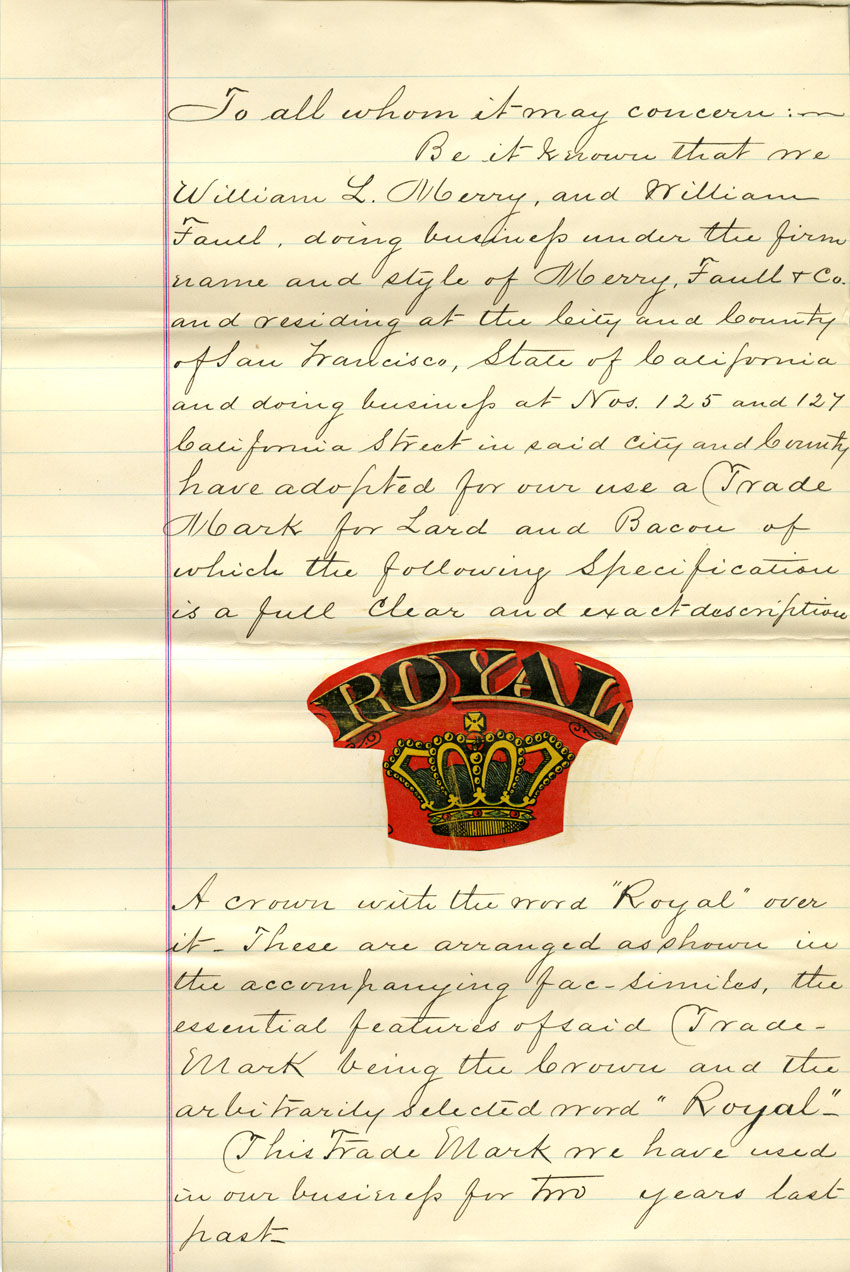 To all whom it may concern:—
Be it known that we
William L. Merry, and William
Faull, doing business under the firm
name and style of Merry, Faull & Co.
and residing at the City and County
of San Francisco, State of California
and doing business at Nos. 125 and 127
California Street in said City and County
have adopted for our use a Trade
Mark for Lard and Bacon of
which the following Specification
is a full Clear and exact description
ROYAL
A crown with the word "Royal" over
it – These are arranged as shown in
the accompanying fac-similes, the
essential features of said Trade-
Mark being the Crown and the
arbitrarily selected word "Royal" –
This Trade Mark we have used
in our business for two years last
past –